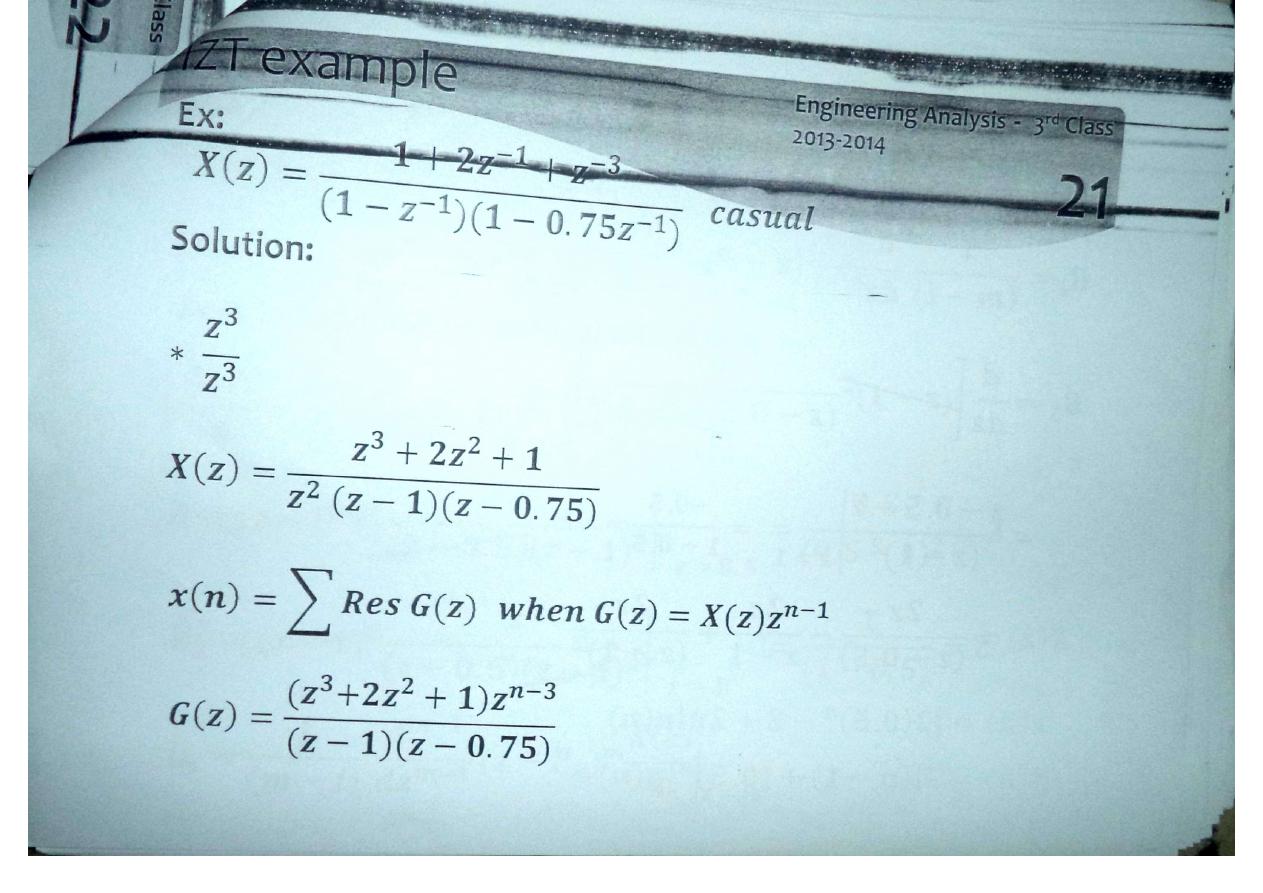 22
lass
IZT example
Engineering Analysis - 3rd Class
2013-2014
21
Ex:
X(z) = (1 + 2z⁻¹ + z⁻³) / ((1 − z⁻¹)(1 − 0.75z⁻¹)) casual
Solution:
* z³ / z³
X(z) = (z³ + 2z² + 1) / (z² (z − 1)(z − 0.75))
x(n) = ∑ Res G(z) when G(z) = X(z)zⁿ⁻¹
G(z) = (z³+2z² + 1)zⁿ⁻³ / ((z − 1)(z − 0.75))